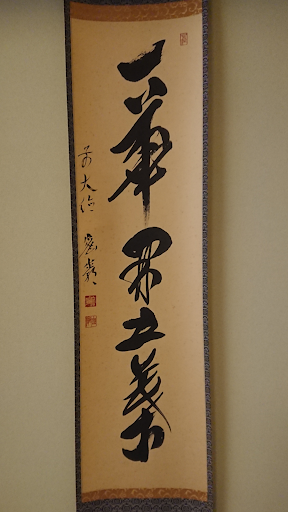 一華開五葉
前大徳